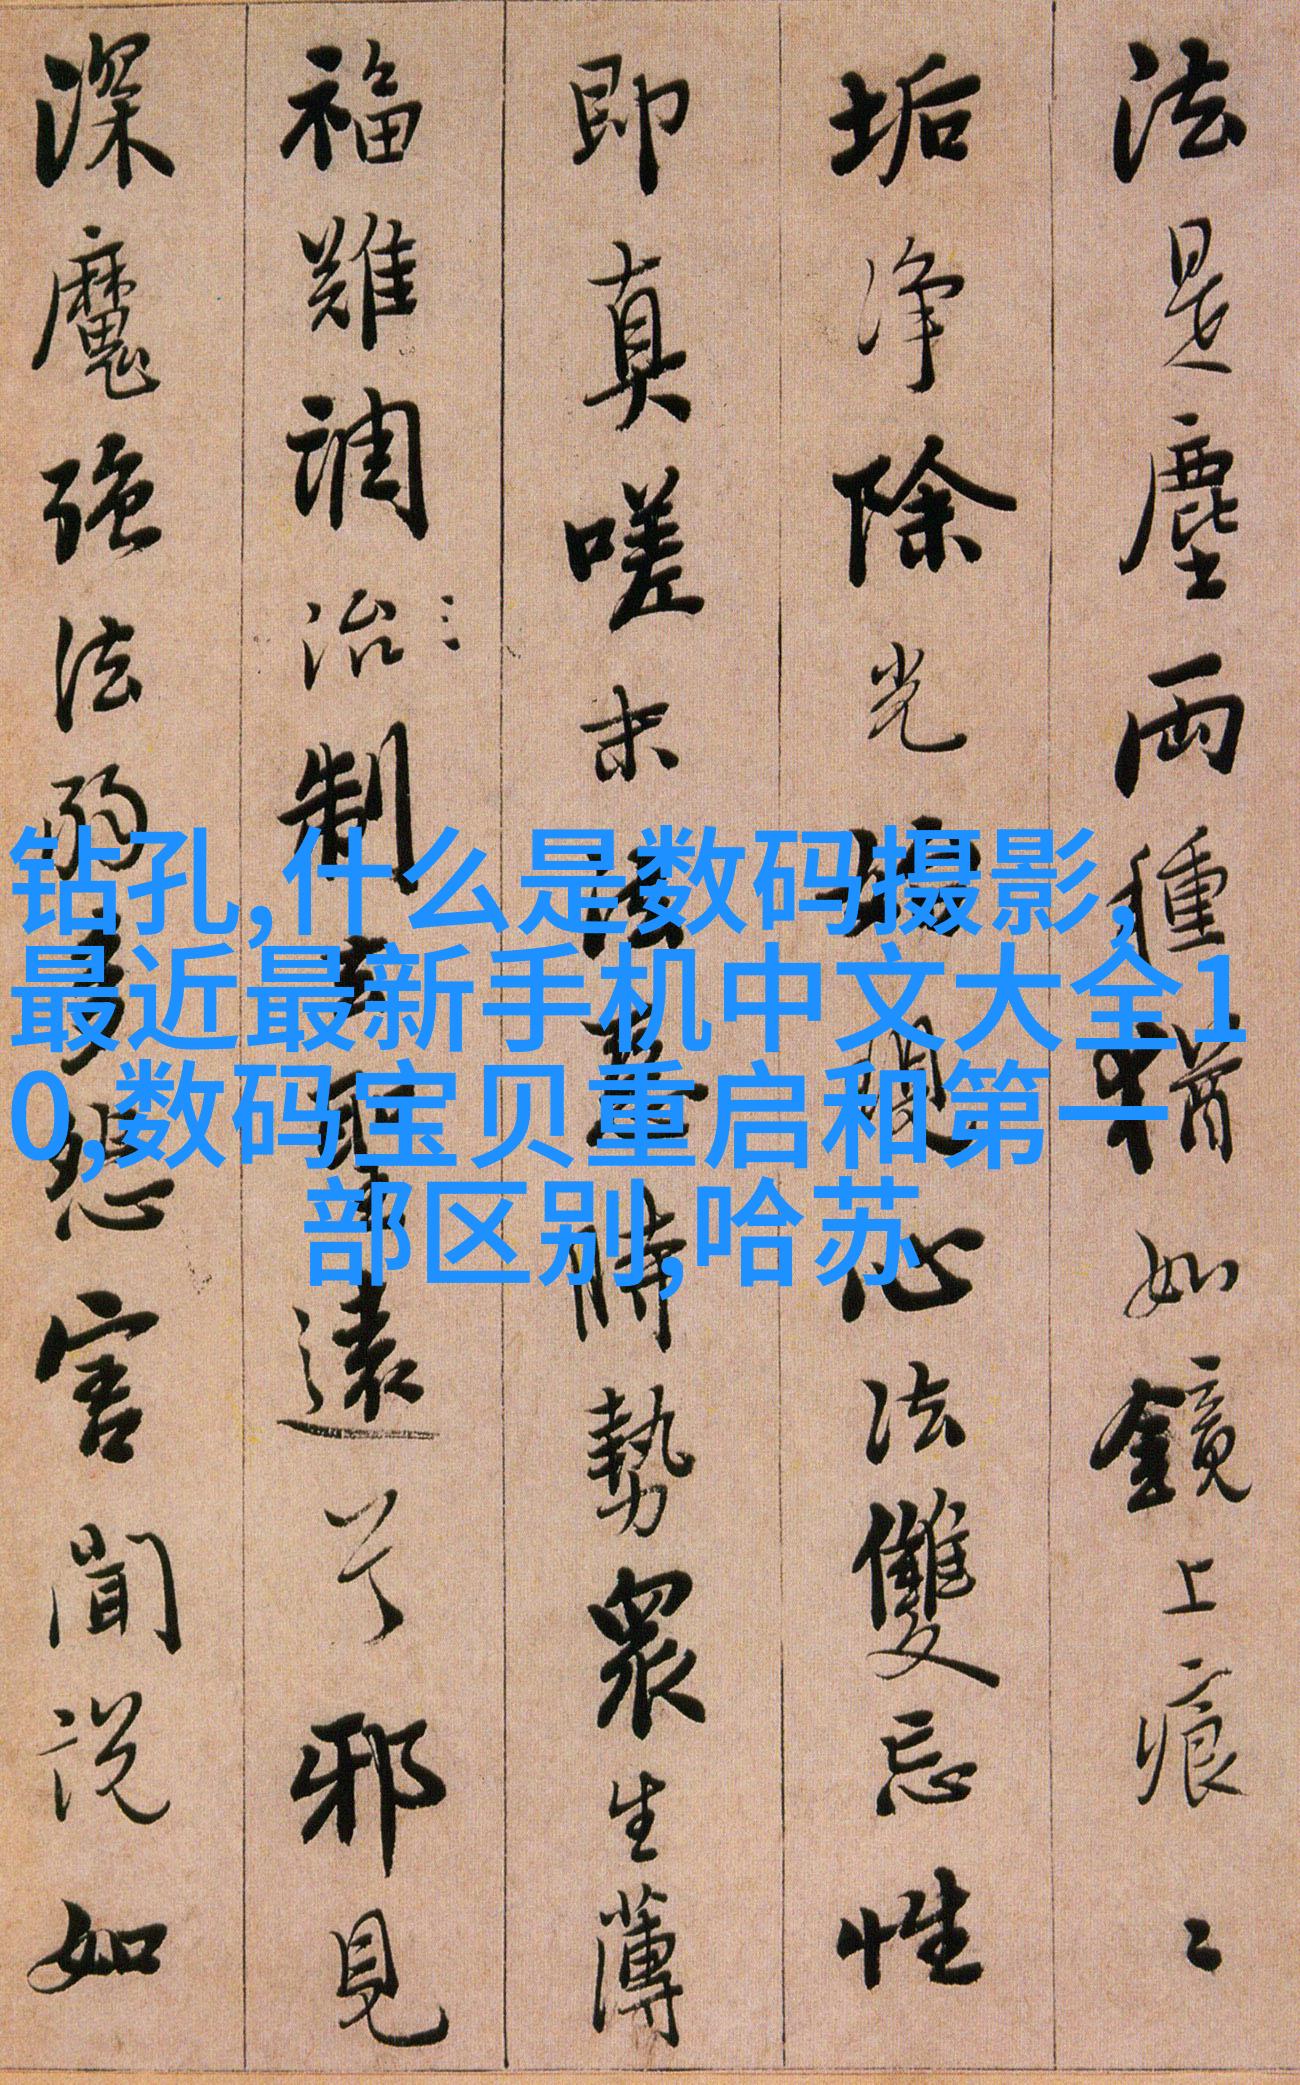 法是塵兩種猶如鏡上痕〻
垢净除光始現心法雙忘性
即真嗟末法惡時勢眾生薄
福難調治制去聖遠兮邪見
深魔強法弱多怨害聞說如
钻孔,什么是数码摄影,
最近最新手机中文大全1
0,数码宝贝重启和第一
部区别,哈苏